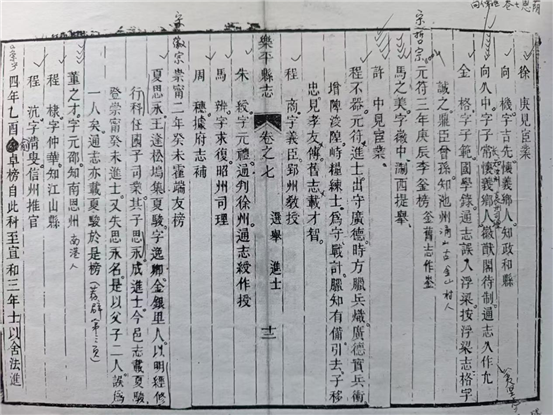 徐 庚見宦業
向 機字吉先懷義鄉人知政和縣
向久中字子常懷義鄉人徽猷閣待制通志久作九
金 格字子範國學錄通志誤入浮梁按浮梁志格字
誠之鼎臣曾孫知池州
宋哲宗
元符三年庚辰李釜榜釜舊志作荃
馬之美字徽中湖西提舉
許 中見宦業
程不器元符進士出守廣德時方臘兵熾廣德實兵衝
增陴浚隍峙糧練士為守戰計臘知有備引去子移
忠見孝友傳舊志載才智
程 商字義臣鄆州教授
樂平縣志
卷之七
選舉 進士
十二
朱 綬字元禮通判徐州通志綬作授
馬 辨字求復昭州司理
周 穗據府志補
宋徽宗
崇甯二年癸未霍端友榜
夏思永王逢松塢集夏駿字逸卿金銀里人以明經修
行科任國子司業其子思永成進士今邑志載夏駿
登崇甯癸未進士又失思永名是以父子二人誤為
一人矣通志亦載夏駿於是榜
董之才字元邵知南恩州
程 棣字仲華知江山縣
程 沇字滑叟信州推官
四年乙酉 卓榜自此科至宣和三年士以舍法進